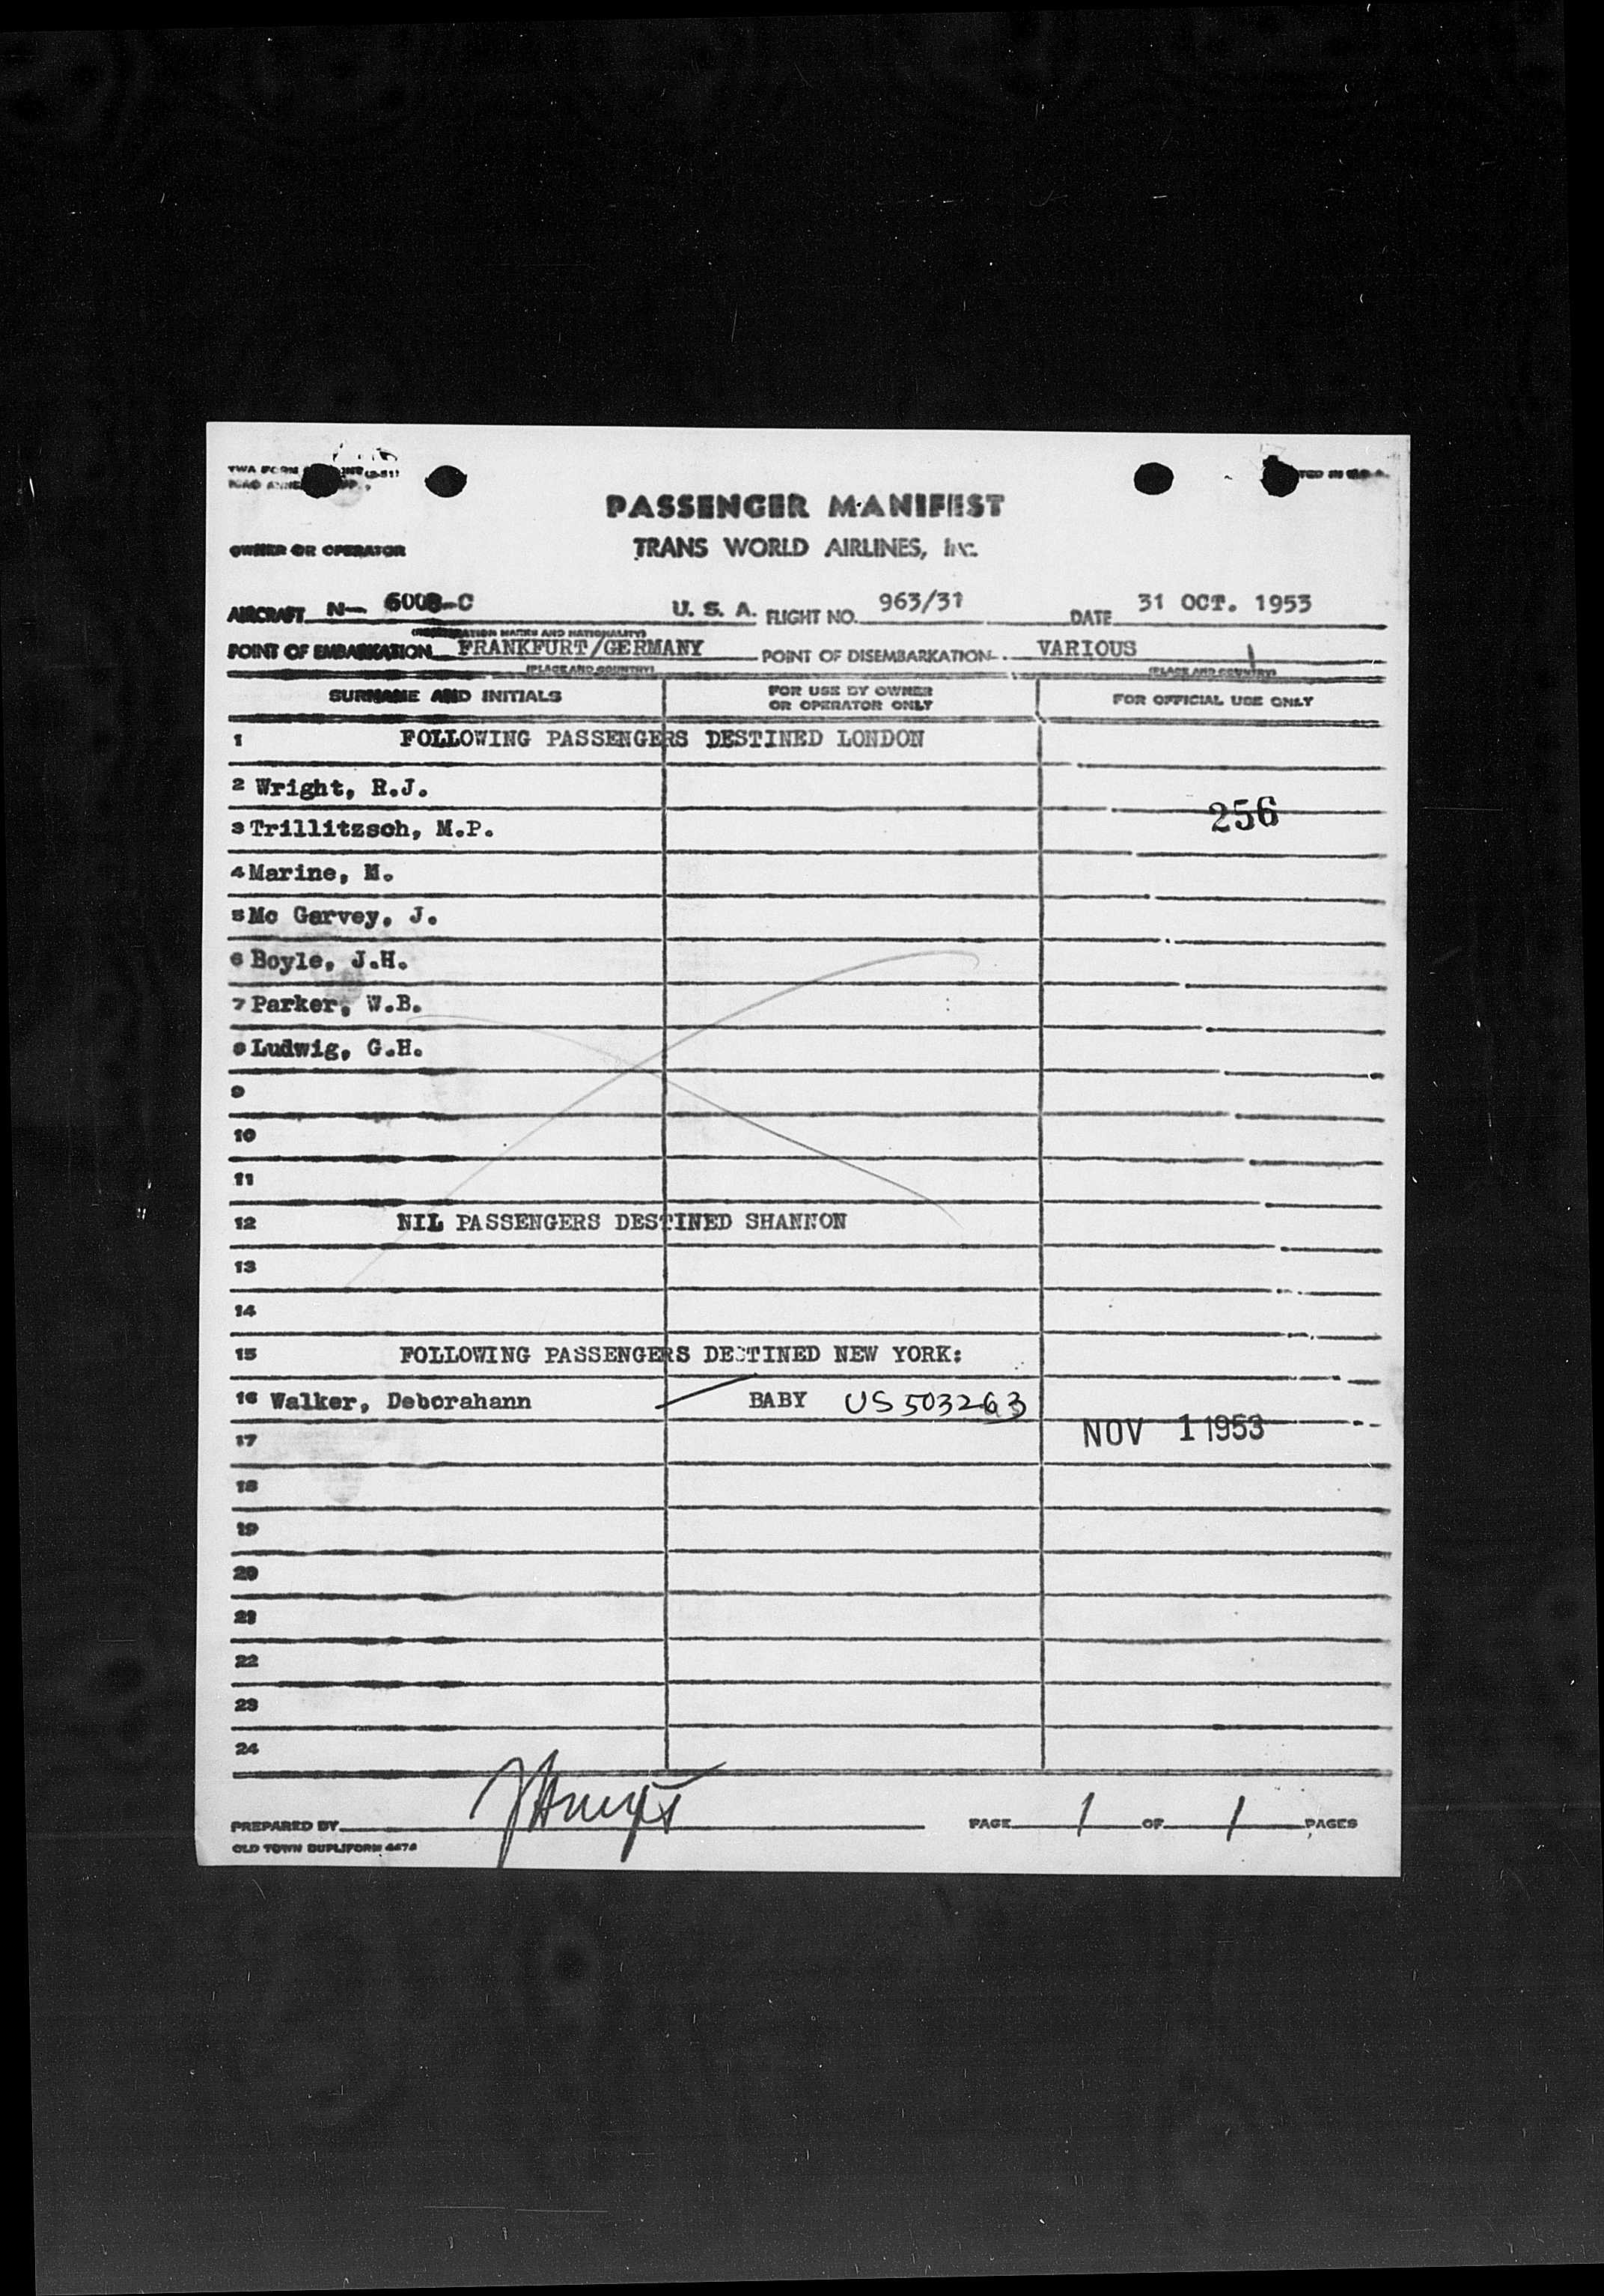 TWA FORM
PASSENGER MANIFEST
OWNER OR OPERATOR TRANS WORLD AIRLINES, Inc.
AIRCRAFT N- 6008-C U. S. A. FLIGHT NO. 963/31 DATE 31 OCT. 1953
(REGISTRATION MARKS AND NATIONALITY)
POINT OF EMBARKATION FRANKFURT/GERMANY POINT OF DISEMBARKATION VARIOUS
(PLACE AND COUNTRY) (PLACE AND COUNTRY)
SURNAME AND INITIALS FOR USE BY OWNER OR OPERATOR ONLY FOR OFFICIAL USE ONLY
1 FOLLOWING PASSENGERS DESTINED LONDON
2 Wright, R.J.
256
3 Trillitzsch, M.P.
4 Marine, M.
5 Mc Garvey, J.
6 Boyle, J.H.
7 Parker, W.B.
8 Ludwig, G.H.
9
10
11
12 NIL PASSENGERS DESTINED SHANNON
13
14
15 FOLLOWING PASSENGERS DESTINED NEW YORK:
16 Walker, Deborahann BABY US 503263
17 NOV 1 1953
18
19
20
21
22
23
24
PREPARED BY PAGE 1 OF 1 PAGES
OLD TOWN DUPLIFORM 4474